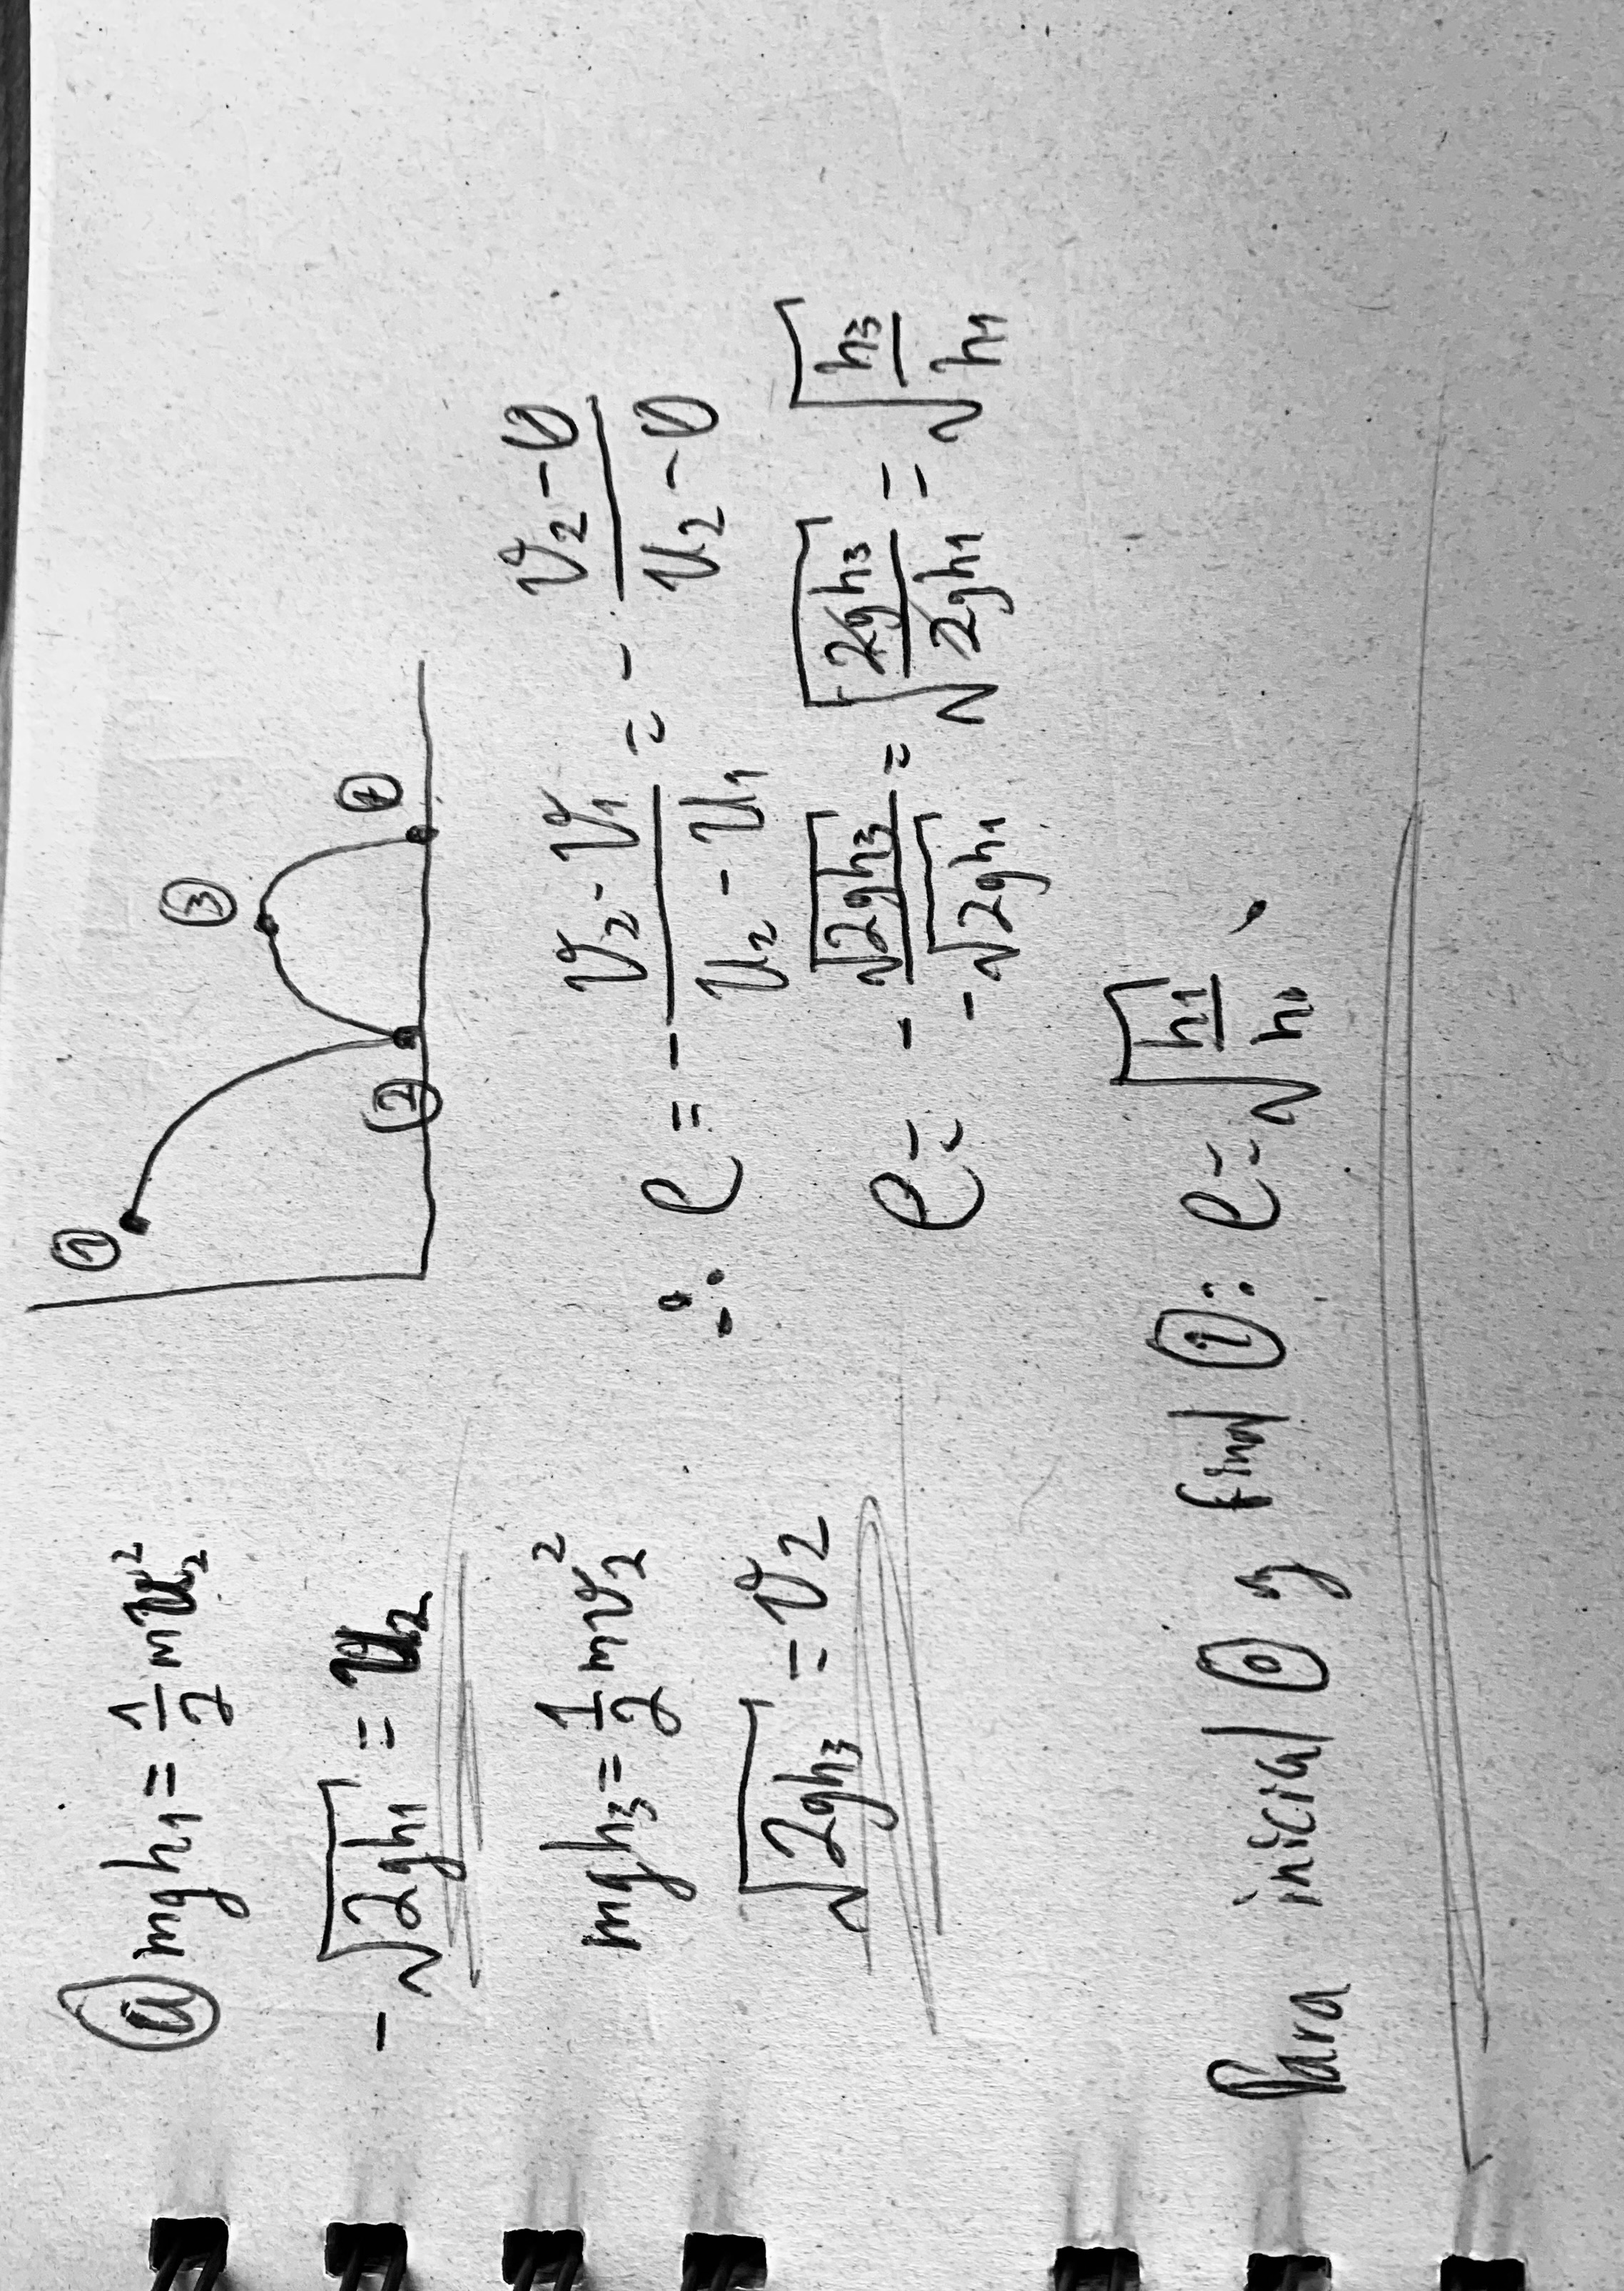 ⓐ mgh₁ = 1/2 mu₂²
-√(2gh₁) = u₂
mgh₃ = 1/2 mv₂²
√(2gh₃) = v₂
① ② ③ ④
∴ e = - (v₂ - v₁)/(u₂ - u₁) = - (v₂ - 0)/(u₂ - 0)
e = - √(2gh₃)/-√(2gh₁) = √(2gh₃/2gh₁) = √(h₃/h₁)
Para inicial ⓪ y final ①: e = √(h₁/h₀)